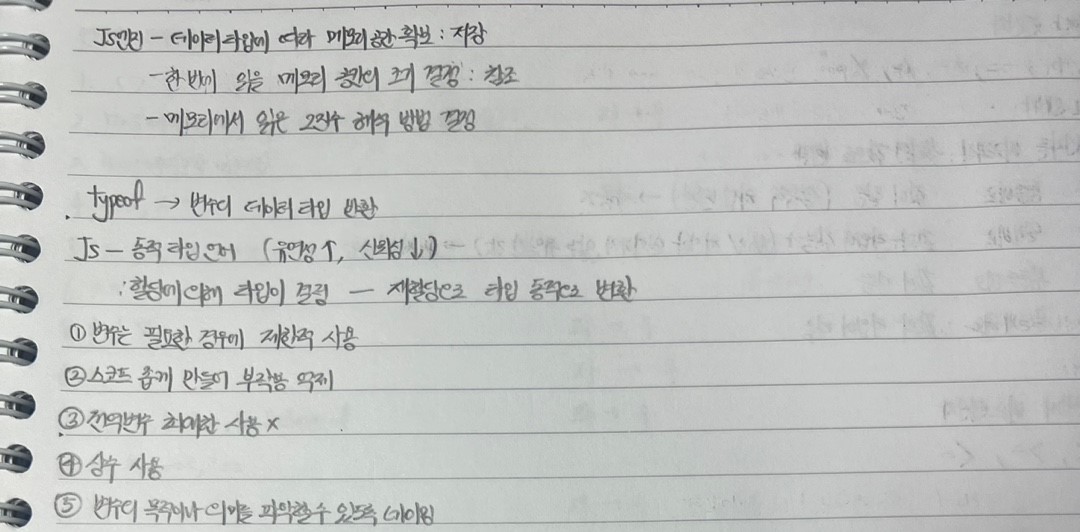 Js엔진 - 데이터 타입에 따라 메모리 공간 확보 : 저장
- 한 번에 읽을 메모리 공간의 크기 결정 : 참조
- 메모리에서 읽은 2진수 해석 방법 결정
. typeof → 변수의 데이터 타입 반환
Js - 동적 타입 언어 (유연성↑, 신뢰성↓)
: 할당에 의해 타입이 결정 - 재할당으로 타입 동적으로 변환
① 변수는 필요한 경우에 제한적 사용
② 스코프 좁게 만들어 부작용 억제
③ 전역변수 최대한 사용 x
④ 상수 사용
⑤ 변수의 목적이나 의미를 파악할 수 있도록 네이밍